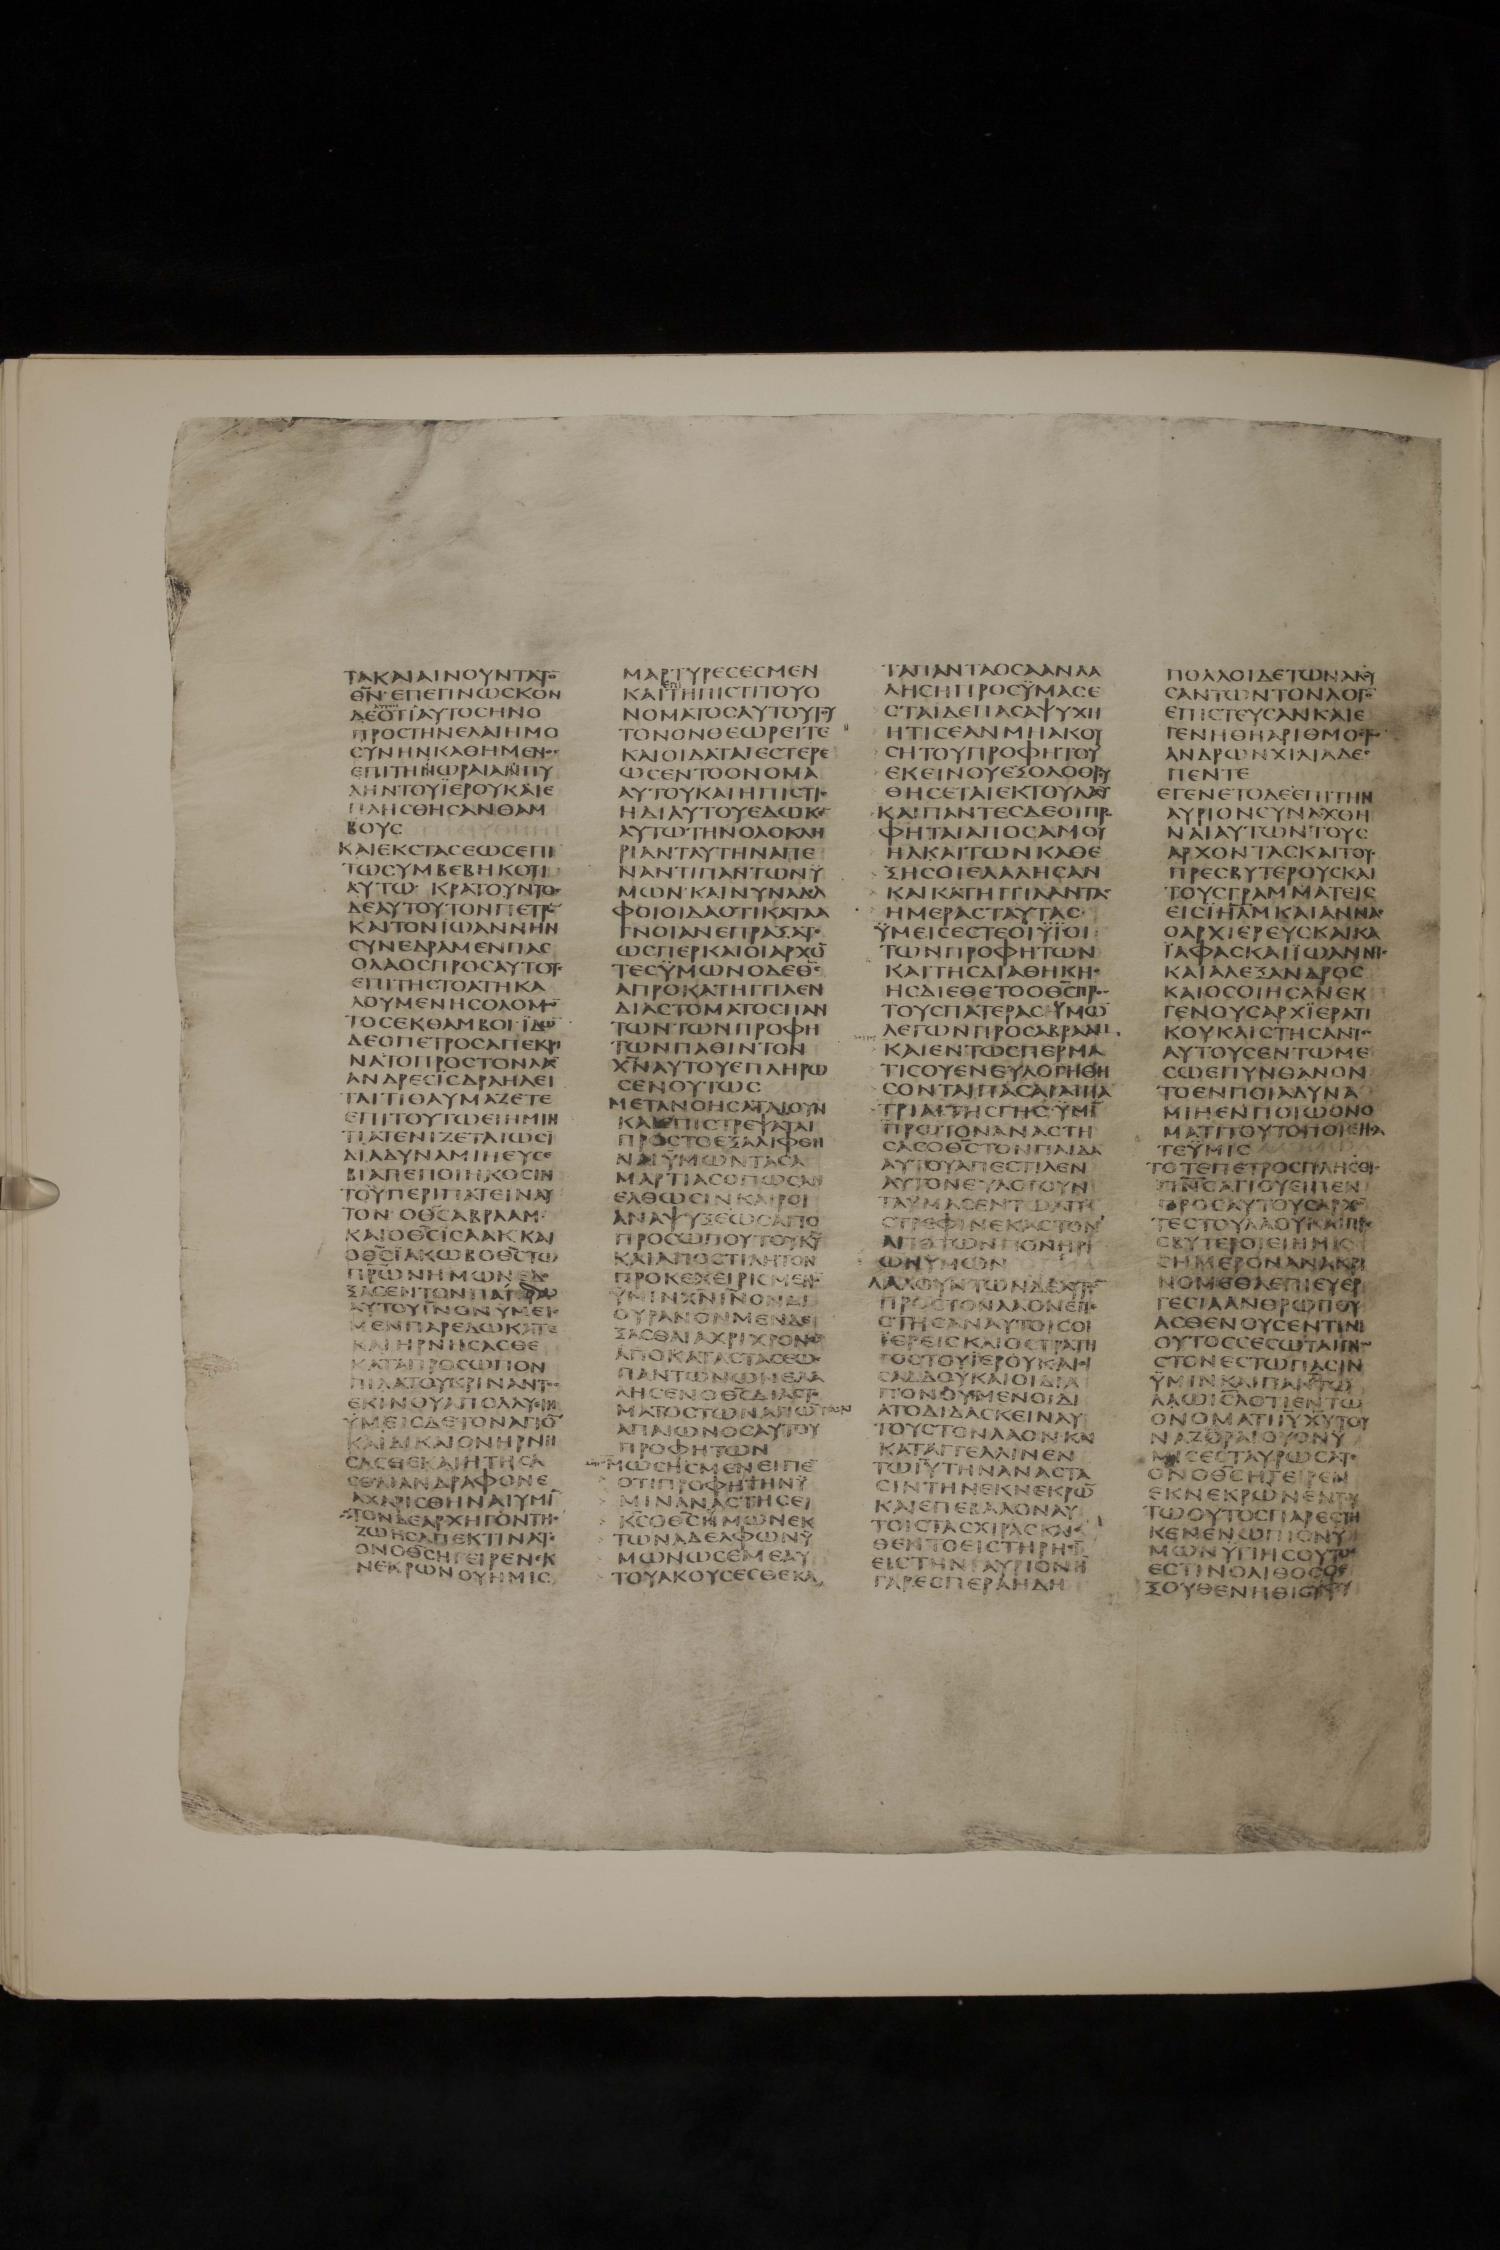 ΤΑΚΑΙΑΙΝΟΥΝΤΑΤΟ̅
Θ̅Ν̅·ΕΠΕΓΙΝΩΣΚΟΝ
ΔΕΟΤΙΑΥΤΟCΗΝΟ
ΠΡΟCΤΗΝΕΛΑΙΗΜΟ
CΥΝΗΝΚΑΘΗΜΕΝ
ΕΠΙΤΗ ΩΡΑΙΑ ΠΥ
ΛΗΝΤΟΥΪΕΡΟΥΚΑΙΕ
ΠΛΗCΘΗCΑΝΘΑΜ
ΒΟΥC
ΚΑΙΕΚCΤΑCΕΩCΕΠΙ
ΤΩCΥΜΒΕΒΗΚΟΤΙ
ΑΥΤΩ· ΚΡΑΤΟΥΝΤΟ
ΔΕΑΥΤΟΥΤΟΝΠΕΤΡ
ΚΑΙΤΟΝΪΩΑΝΝΗΝ
CΥΝΕΔΡΑΜΕΝΠΑC
ΟΛΑΟCΠΡΟCΑΥΤΟΥ
ΕΠΙΤΗCΤΟΑΤΗΚΑ
ΛΟΥΜΕΝΗCΟΛΟΜ
ΤΟCΕΚΘΑΜΒΟΙ·ΪΔΩ
ΔΕΟΠΕΤΡΟCΑΠΕΚΡΙ
ΝΑΤΟΠΡΟCΤΟΝΛΑ
ΑΝΔΡΕCΪCΔΡΑΗΛΕΙ
ΤΑΙΤΙΘΑΥΜΑΖΕΤΕ
ΕΠΙΤΟΥΤΩΕΙΗΜΙΝ
ΤΙΑΤΕΝΙΖΕΤΑΙΩCΙ
ΔΙΑΔΥΝΑΜΙΗΕΥCΕ
ΒΙΑΠΕΠΟΙΗΚΟCΙΝ
ΤΟΥΠΕΡΙΠΑΤΕΙΝΑΥ
ΤΟΝ· ΟΘ̅C̅ΑΒΡΑΑΜ·
ΚΑΙΟΘ̅C̅ΪCΑΑΚΚΑΙ
ΟΘ̅C̅ΪΑΚΩΒΟΘ̅C̅ΤΩ
ΠΡ̅ΩΝΗΜΩΝΕΔ
ΞΑCΕΝΤΟΝΠΑΙΔΑ
ΑΥΤΟΥΙ̅Ν̅ΟΝΥΜΕΙ
ΜΕΝΠΑΡΕΔΩΚΑΤΕ
ΚΑΙΗΡΝΗCΑCΘΕ
ΚΑΤΑΠΡΟCΩΠΟΝ
ΠΙΛΑΤΟΥΚΡΙΝΑΝΤ
ΕΚΙΝΟΥΑΠΟΛΛΥΙΝ
ΫΜΕΙCΔΕΤΟΝΑΓΙΟ̅
ΚΑΙΔΙΚΑΙΟΝΗΡΝΗ
CΑCΘΕΚΑΙΗΤΗCΑ
CΘΑΙΑΝΔΡΑΦΟΝΕ
ΑΧΑΡΙCΘΗΝΑΙΥΜΙ̅
ΤΟΝΔΕΑΡΧΗΓΟΝΤΗ
ΖΩΗCΑΠΕΚΤΙΝΑΤ
ΟΝΟΘ̅C̅ΗΓΕΙΡΕΝΕΚ
ΝΕΚΡΩΝΟΥΗΜΙC
ΜΑΡΤΥΡΕCΕCΜΕΝ
ΚΑΙΤΗΠΙCΤΙΤΟΥΟ
ΝΟΜΑΤΟCΑΥΤΟΥΤΟΥ
ΤΟΝΟΝΘΕΩΡΕΙΤΕ
ΚΑΙΟΙΔΑΤΑΙΕCΤΕΡΕ
ΩCΕΝΤΟΟΝΟΜΑ
ΑΥΤΟΥΚΑΙΗΠΙCΤΙ
ΗΔΙΑΥΤΟΥΕΔΩΚ
ΑΥΤΩΤΗΝΟΛΟΚΛΗ
ΡΙΑΝΤΑΥΤΗΝΑΠΕ
ΝΑΝΤΙΠΑΝΤΩΝΫ
ΜΩΝ·ΚΑΙΝΥΝΑΔΛ
ΦΟΙΟΙΔΑΟΤΙΚΑΤΑΑ
ΓΝΟΙΑΝΕΠΡΑΞΑΤ
ΩCΠΕΡΚΑΙΟΙΑΡΧΟ̅
ΤΕCΫΜΩΝΟΔΕΘ
ΑΠΡΟΚΑΤΗΓΓΙΛΕΝ
ΔΙΑCΤΟΜΑΤΟCΠΑΝ
ΤΩΝΤΩΝΠΡΟΦΗ
ΤΩΝΠΑΘΙΝΤΟΝ
Χ̅Ν̅ΑΥΤΟΥΕΠΛΗΡΩ
CΕΝΟΥΤΩC
ΜΕΤΑΝΟΗCΑΤΑΙΟΥΝ
ΚΑΙΕΠΙCΤΡΕΨΑΤΑΙ
ΠΡΟCΤΟΕΞΑΛΙΦΘΗ
ΝΑΙΫΜΩΝΤΑCΑ
ΜΑΡΤΙΑCΟΠΩCΑΝ
ΕΛΘΩCΙΝΚΑΙΡΟΙ
ΑΝΑΨΥΞΕΩCΑΠΟ
ΠΡΟCΩΠΟΥΤΟΥΚ̅Υ̅
ΚΑΙΑΠΟCΤΙΛΗΤΟΝ
ΠΡΟΚΕΧΕΙΡΙCΜΕΝ
ΫΜΙΝΧ̅Ν̅Ι̅Ν̅ΟΝΔΙ
ΟΥΡΑΝΟΝΜΕΝΔΕΙ
ΞΑCΘΑΙΑΧΡΙΧΡΟΝΩ
ΑΠΟΚΑΤΑCΤΑCΕΩ
ΠΑΝΤΩΝΩΝΕΛΑ
ΛΗCΕΝΟΘ̅C̅ΔΙΑCΤ
ΜΑΤΟCΤΩΝΑΓΙΩΤΩΝ
ΑΠΑΙΩΝΟCΑΥΤΟΥ
ΠΡΟΦΗΤΩΝ
ΜΩCΗCΜΕΝΕΙΠΕ
ΟΤΙΠΡΟΦΗΤΗΝΫ
ΜΙΝΑΝΑCΤΗCΕΙ
Κ̅C̅ΟΘ̅C̅ΗΜΩΝΕΚ
ΤΩΝΑΔΕΛΦΩΝΫ
ΜΩΝΩCΕΜΕΑΥ
ΤΟΥΑΚΟΥCΕCΘΕΚΑ
ΤΑΠΑΝΤΑΟCΑΑΝΛΑ
ΛΗCΗΠΡΟCΫΜΑCΕ
CΤΑΙΔΕΠΑCΑΨΥΧΗ
ΗΤΙCΕΑΝΜΗΑΚΟΥ
CΗΤΟΥΠΡΟΦΗΤΟΥ
ΕΚΕΙΝΟΥΕΞΟΛΟΘΡΥ
ΘΗCΕΤΑΙΕΚΤΟΥΛΑΟΥ
ΚΑΙΠΑΝΤΕCΔΕΟΙΠΡ
ΦΗΤΑΙΑΠΟCΑΜΟΥ
ΗΛΚΑΙΤΩΝΚΑΘΕ
ΞΗCΟCΟΙΕΛΑΛΗCΑΝ
ΚΑΙΚΑΤΗΓΓΙΛΑΝΤΑ
ΗΜΕΡΑCΤΑΥΤΑC·
ΫΜΕΙCΕCΤΕΟΙΫΪΟΙ
ΤΩΝΠΡΟΦΗΤΩΝ
ΚΑΙΤΗCΔΙΑΘΗΚΗ
ΗCΔΙΕΘΕΤΟΟΘ̅C̅ΠΡ
ΤΟΥCΠΑΤΕΡΑCΫΜΩ̅
ΛΕΓΩΝΠΡΟCΑΒΡΑΑΜ
ΚΑΙΕΝΤΩCΠΕΡΜΑ
ΤΙCΟΥΕΝΕΥΛΟΓΗΘΗ
CΟΝΤΑΙΠΑCΑΙΑΙΠΑ
ΤΡΙΑΙΤΗCΓΗC·ΫΜΙ̅
ΠΡΩΤΟΝΑΝΑCΤΗ
CΑCΟΘ̅C̅ΤΟΝΠΑΙΔΑ
ΑΥΤΟΥΑΠΕCΤΙΛΕΝ
ΑΥΤΟΝΕΥΛΟΓΟΥΝ
ΤΑΫΜΑCΕΝΤΩΑΠΟ
CΤΡΕΦΙΝΕΚΑCΤΟΝ
ΑΠΟΤΩΝΠΟΝΗΡΙ
ΩΝΫΜΩΝ
ΛΑΛΟΥΝΤΩΝΔΕΑΥΤ
ΠΡΟCΤΟΝΛΑΟΝΕΠ
CΤΗCΑΝΑΥΤΟΙCΟΙ
ΪΕΡΕΙCΚΑΙΟCΤΡΑΤΗ
ΓΟCΤΟΥΪΕΡΟΥΚΑΙ
CΑΔΔΟΥΚΑΙΟΙΔΙΑ
ΠΟΝΟΥΜΕΝΟΙΔΙ
ΑΤΟΔΙΔΑCΚΕΙΝΑΥ
ΤΟΥCΤΟΝΛΑΟΝΚΑΙ
ΚΑΤΑΓΓΕΛΛΙΝΕΝ
ΤΩΙ̅Υ̅ΤΗΝΑΝΑCΤΑ
CΙΝΤΗΝΕΚΝΕΚΡΩ̅
ΚΑΙΕΠΕΒΑΛΟΝΑΥ
ΤΟΙCΤΑCΧΙΡΑCΚΑΙ
ΘΕΝΤΟΕΙCΤΗΡΗ
ΕΙCΤΗΝΑΥΡΙΟΝΗ
ΓΑΡΕCΠΕΡΑΗΔΗ
ΠΟΛΛΟΙΔΕΤΩΝΑΚΟΥ
CΑΝΤΩΝΤΟΝΛΟΓ
ΕΠΙCΤΕΥCΑΝΚΑΙΕ
ΓΕΝΗΘΗΑΡΙΘΜΟC
ΑΝΔΡΩΝΧΙΛΙΑΔΕ
ΠΕΝΤΕ
ΕΓΕΝΕΤΟΔΕΕΠΙΤΗΝ
ΑΥΡΙΟΝCΥΝΑΧΘΗ
ΝΑΙΑΥΤΩΝΤΟΥC
ΑΡΧΟΝΤΑCΚΑΙΤΟΥ
ΠΡΕCΒΥΤΕΡΟΥCΚΑΙ
ΤΟΥCΓΡΑΜΜΑΤΕΙC
ΕΙCΪΗ̅Λ̅Μ̅ΚΑΙΑΝΝΑ
ΟΑΡΧΙΕΡΕΥCΚΑΙΚΑ
ΪΑΦΑCΚΑΙΪΩΑΝΝΗ
ΚΑΙΑΛΕΞΑΝΔΡΟC
ΚΑΙΟCΟΙΗCΑΝΕΚ
ΓΕΝΟΥCΑΡΧΪΕΡΑΤΙ
ΚΟΥΚΑΙCΤΗCΑΝΤ
ΑΥΤΟΥCΕΝΤΩΜΕ
CΩΕΠΥΝΘΑΝΟΝ
ΤΟΕΝΠΟΙΑΔΥΝΑ
ΜΙΗΕΝΠΟΙΩΟΝΟ
ΜΑΤΙΤΟΥΤΟΕΠΟΙΗCΑ
ΤΕΫΜΙC
ΤΟΤΕΠΕΤΡΟCΠΛΗCΘΙ
Π̅Ν̅C̅ΑΓΙΟΥΕΙΠΕΝ
ΠΡΟCΑΥΤΟΥCΑΡΧ
ΤΕCΤΟΥΛΑΟΥΚΑΙΠΡ
CΒΥΤΕΡΟΙΕΙΗΜΙC
CΗΜΕΡΟΝΑΝΑΚΡΙ
ΝΟΜΕΘΑΕΠΙΕΥΕΡ
ΓΕCΙΑΑΝΘΡΩΠΟΥ
ΑCΘΕΝΟΥCΕΝΤΙΝΙ
ΟΥΤΟCCΕCΩΤΑΙΓΝ
CΤΟΝΕCΤΩΠΑCΙΝ
ΫΜΙΝΚΑΙΠΑΝΤΩ
ΛΑΩΙC̅ΛΟΤΙΕΝΤΩ
ΟΝΟΜΑΤΙΙ̅Υ̅Χ̅Υ̅ΤΟΥ
ΝΑΖΩΡΑΙΟΥΟΝΫ
ΜΙCΕCΤΑΥΡΩCΑΤ
ΟΝΟΘ̅C̅ΗΓΕΙΡΕΝ
ΕΚΝΕΚΡΩΝΕΝΤΥ
ΤΩΟΥΤΟCΠΑΡΕCΤΗ
ΚΕΝΕΝΩΠΙΟΝΫ
ΜΩΝΥΓΙΗCΟΥΤΟ
ΕCΤΙΝΟΛΙΘΟCΟ
ΞΟΥΘΕΝΗΘΙC